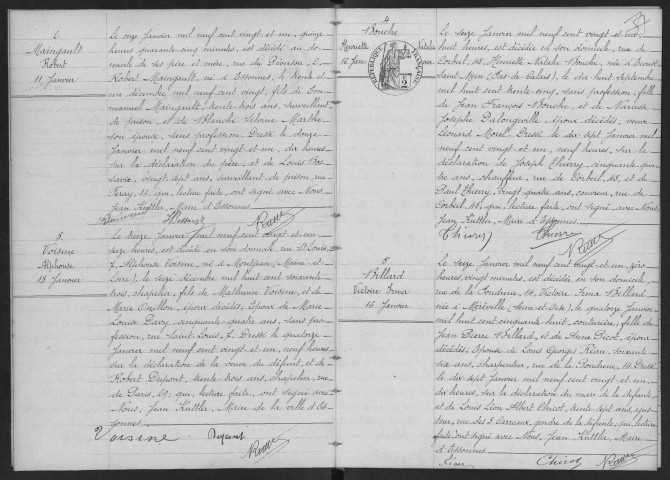 Maingault
Robert
11 Janvier
Le onze Janvier mil neuf cent vingt et un, quinze
heures quarante cinq minutes, est décédé au do-
micile de ses père et mère, rue du
Robert Maingault, né à Essonnes, le trente et
un décembre mil neuf cent vingt, fils de
Maingault, trente trois ans, surveillant
de prison, et de Blanche Marthe
son épouse, sans profession. Dressé le douze
Janvier mil neuf cent vingt et un, dix heures
sur la déclaration du père, et de Louis
vingt sept ans, surveillant de prison, rue
Feray, 11, qui, lecture faite, ont signé avec Nous,
Jean Küttler, Maire d'Essonnes.
Voisine
Alphonse
15 Janvier
Le seize Janvier mil neuf cent vingt et un
seize heures, est décédé en son domicile, rue St Louis,
7, Alphonse Voisine, né à (Maine-et-
Loire), le seize décembre mil huit cent soixante
trois, chapelier, fils de Mathurin Voisine, et de
Marie Onillon, époux décédés, Epoux de Marie
Louise Davy, cinquante quatre ans, sans pro-
fession, rue Saint Louis, 7. Dressé le
Janvier mil neuf cent vingt et un, neuf heures
sur la déclaration de la veuve du défunt, et de
Robert Dupont, trente trois ans, chapelier, rue
de Paris, 29, qui, lecture faite, ont signé avec
Nous, Jean Küttler, Maire de la ville d'Es-
sonnes.
Voisine Dupont
4
Bouche
Henriette Natalie
16 Janv
RÉPUBLIQUE FRANÇAISE
Le seize Janvier mil neuf cent vingt et un,
huit heures, est décédée en son domicile, rue de
Corbeil, 48, Henriette Natalie Bouche, née à
Saint (Pas de Calais), le dix huit Septembre
mil huit cent trente cinq, sans profession, fille
de Jean François Bouche, et de
Josephe Dalongeville, époux décédés, veuve
Léonard Morel. Dressé le dix sept Janvier mil
neuf cent vingt et un, dix heures, sur la
déclaration de Joseph Thierry, cinquante qua-
tre ans, chauffeur, rue de Corbeil, 48, et de
Paul Thierry, vingt quatre ans, couvreur, rue de
Corbeil, 48, qui, lecture faite, ont signé avec Nous,
Jean Küttler, Maire d'Essonnes.
Thierry Thierry
5
Billard
Victoire Irma
16 Janvier
Le seize Janvier mil neuf cent vingt et un, zéro
heures, vingt minutes, est décédée, en son domicile,
rue de la Poudrerie, 14, Victoire Irma Billard,
née à Méréville (Seine-et-Oise), le quatorze Janvier
mil huit cent cinquante huit, couturière; fille de
Jean Pierre Billard, et de Anne Picot, époux
décédés, Epouse de Louis Georges Kien, soixante
six ans, charpentier, rue de la Poudrerie, 14. Dressé
le dix sept Janvier mil neuf cent vingt et un,
dix heures, sur la déclaration du mari de la défunte,
et de Louis Léon Albert Chicot, trente sept ans, ajus-
teur, rue des 3 Carreaux, gendre de la défunte, qui, lecture
faite, ont signé avec Nous, Jean Küttler, Maire
d'Essonnes.
Kien Chicot